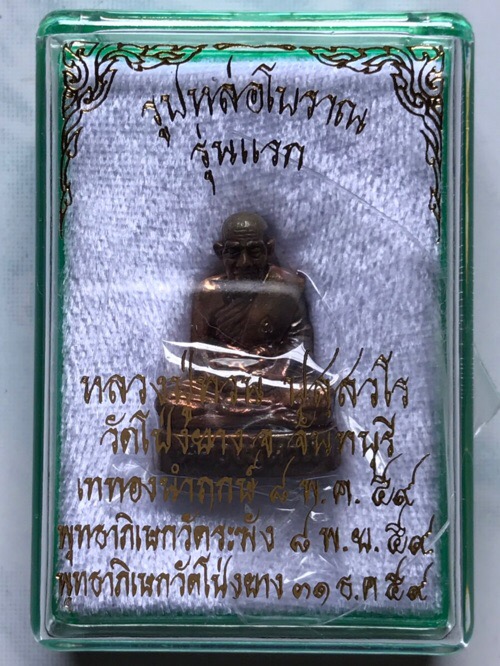 รูปหล่อโบราณ
รุ่นแรก
หลวงปู่ ปุสสวโร
วัดโป่งยาง จ. จันทบุรี
เททองนำฤกษ์ ๘ พ.ค. ๕๙
พุทธาภิเษกวัดระฆัง ๘ พ.ย. ๕๙
พุทธาภิเษกวัดโป่งยาง ๓๑ ธ.ค ๕๙